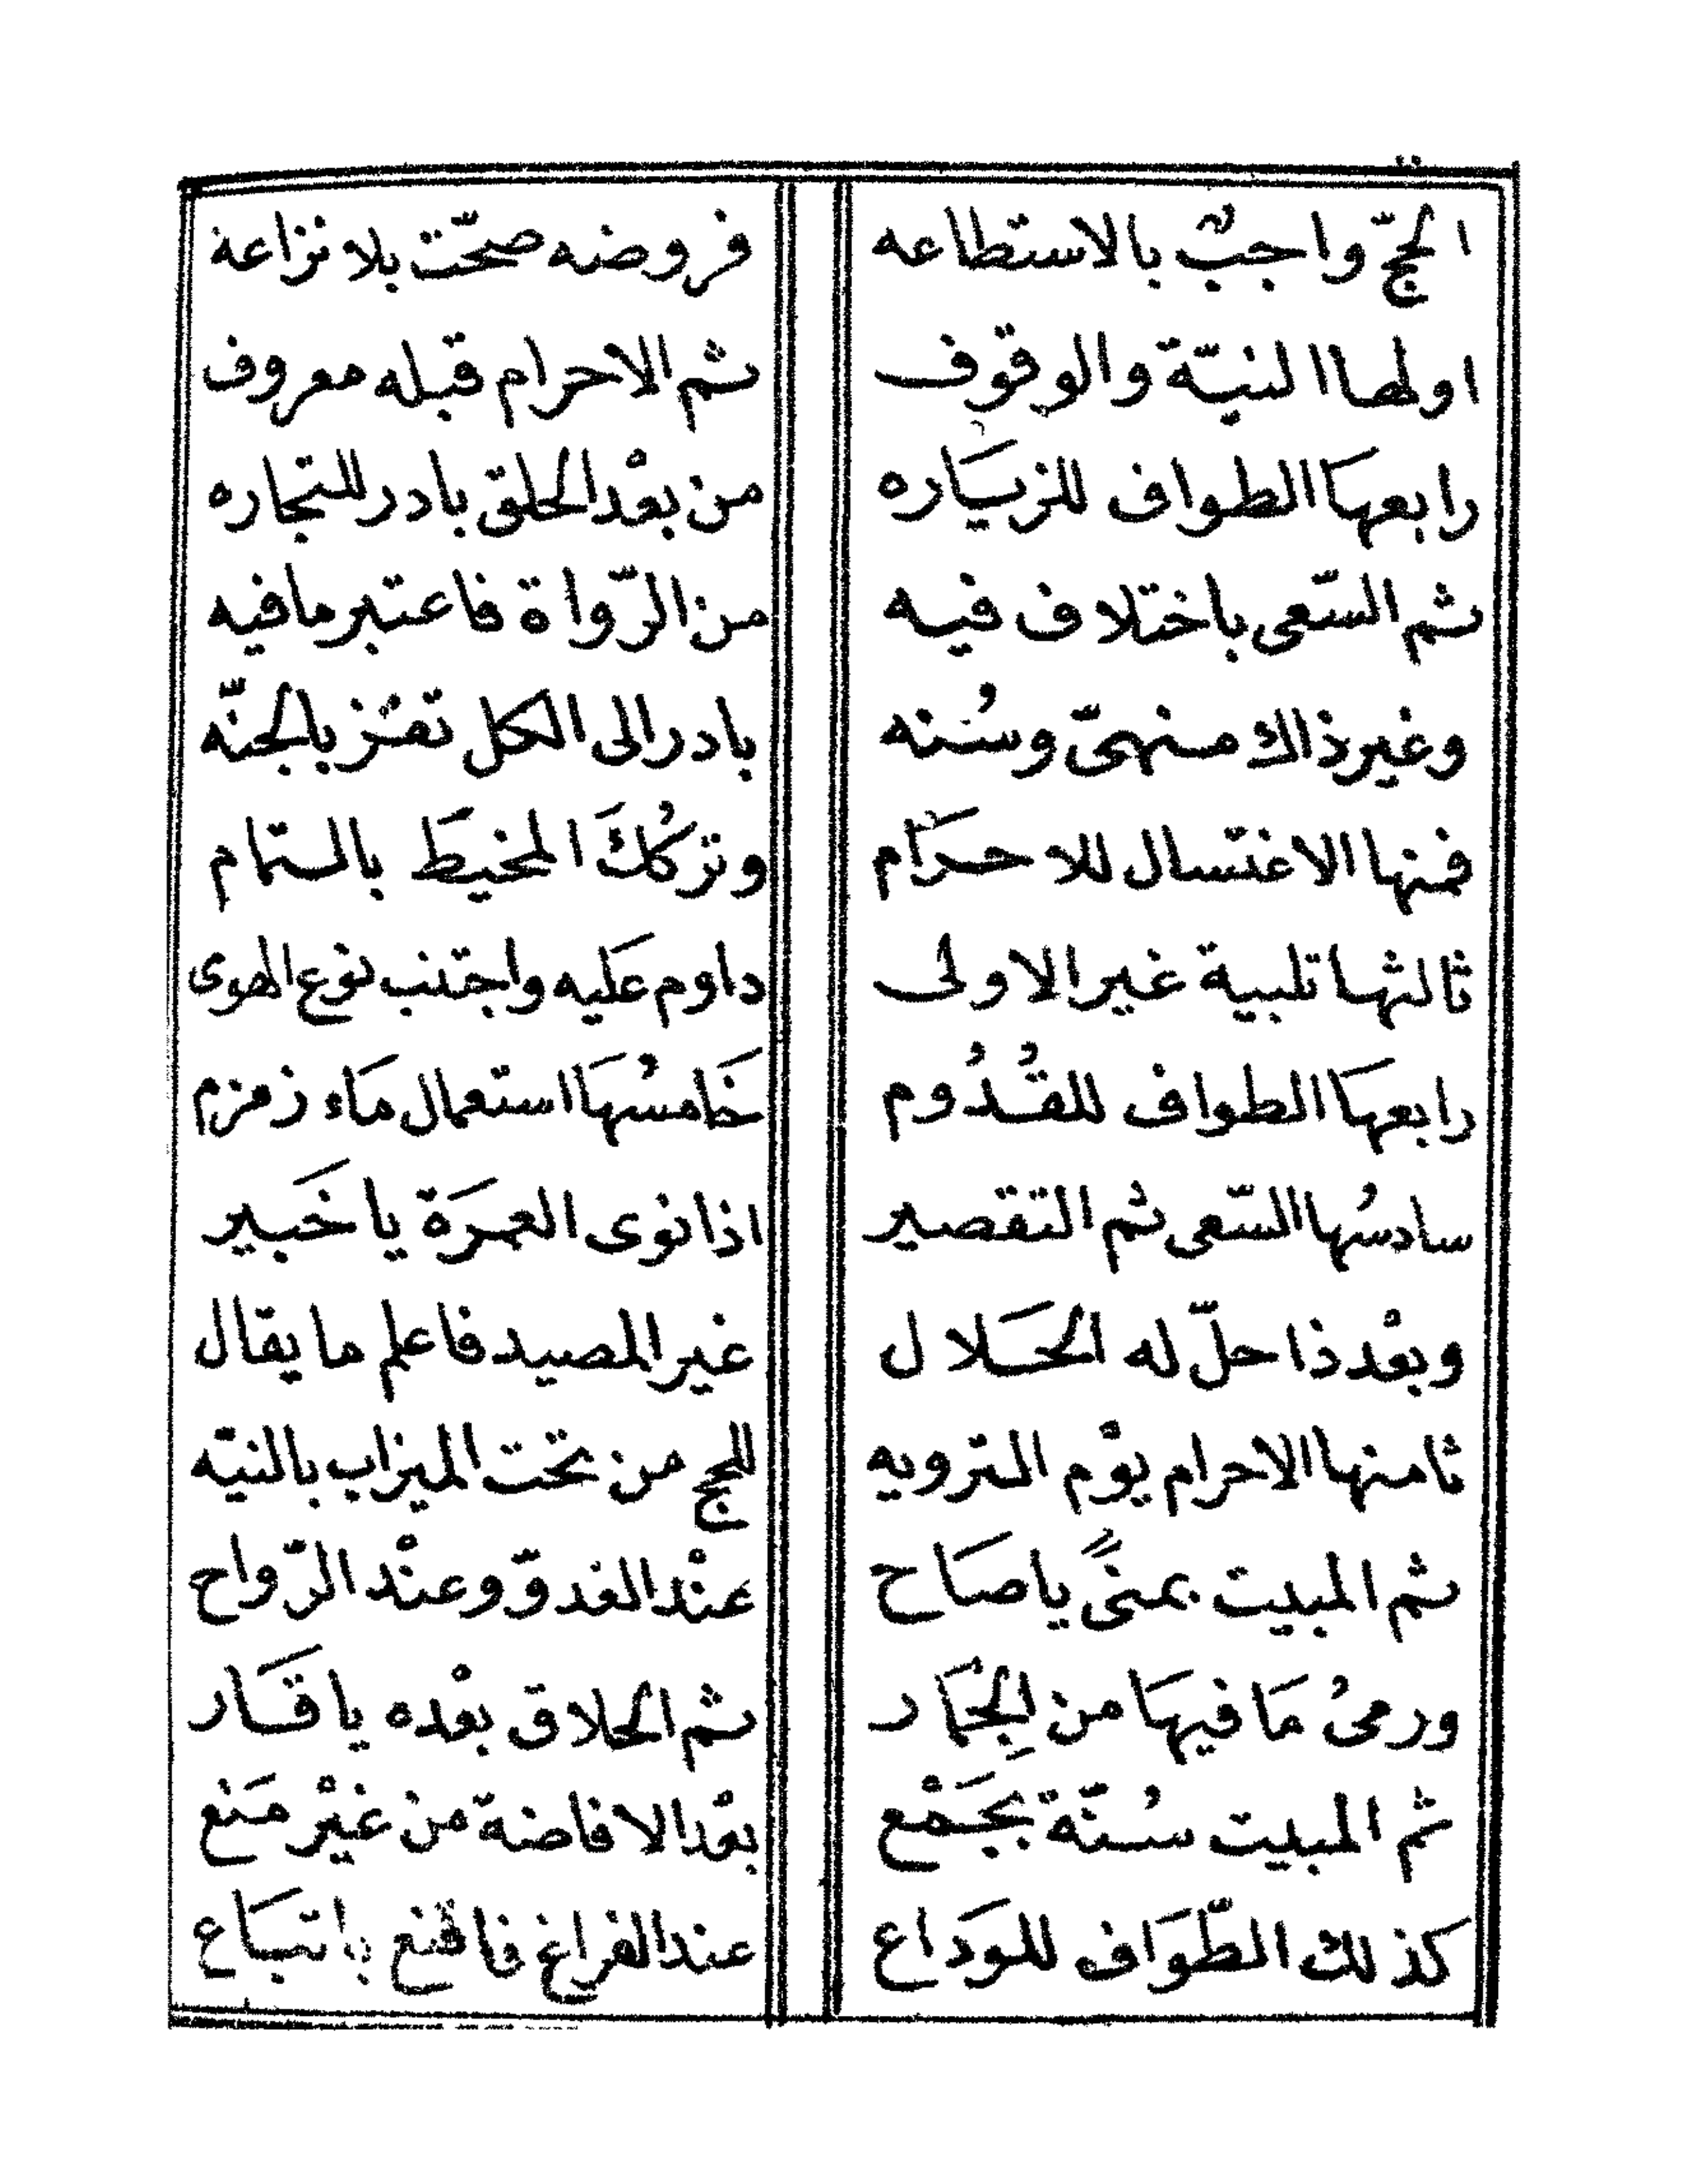 الحجّ واجبٌ بالاستطاعه فروضه صحّت بلا نزاعة
اولها النيّة والوقوف ثم الاحرام قبله معروف
رابعهَا الطواف للزيَاره من بعْد الحلق بادر للتجاره
ثم السّعى باختلاف فيه من الرّواة فاعتبر مافيه
وغير ذاك منهىّ وسُنه بادر الى الكل تفز بالجنّه
فمنها الاغتسال للاحرَام وتركُكَ المخيطَ بالتمام
ثالثها تلبية غير الاولى داوم عَليه واجتنب نوع الهوى
رابعهَا الطواف للقُدُوم خَامسُهَا استعمال مَاء زمزم
سادسُها السّعى ثم التقصير اذا نوى العمرَة يا خَبير
وبعْد ذا حلّ له الحَلال غير المصيد فاعلم ما يقال
ثامنها الاحرام يوْم الترويه للحج من تحت الميزاب بالنيّه
ثم المبيت بمنىً يا صَاح عنْد الغدوّ وعنْد الرّواح
ورمىُ مَا فيهَا من الجِمَار ثم الحلاق بعْده يا قَار
ثم المبيت سُنّة بجَمْع بعْد الافاضة من غيْر مَنع
كذلك الطّوَاف للوَدَاع عند الفراغ فاقنع باتبَاع